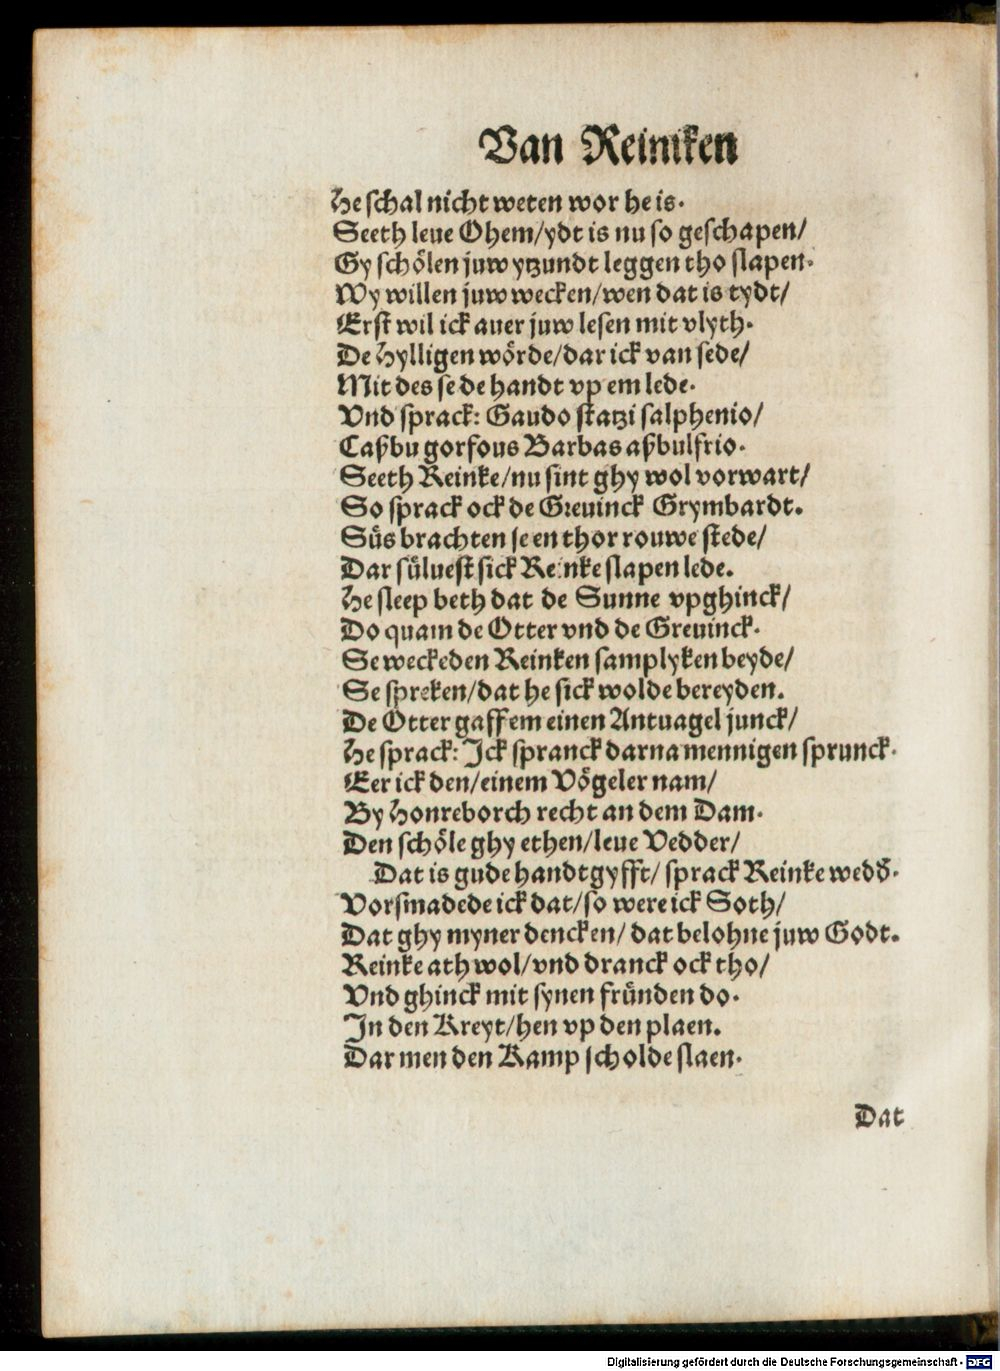 Van Reintken
He schal nicht weten wor he is.
Seeth leue Ohem/ydt is nu so geschapen/
Gy schölen juw ytzundt leggen tho slapen.
Wy willen juw wecken/wen dat is tydt/
Erst wil ick auer juw lesen mit vlyth.
De hylligen wörde/dar ick van sede/
Mit des se de handt vp em lede.
Vnd sprack: Gaudo statzi salphenio/
Caßbu gorfous Barbas aßbulfrio.
Seeth Reinke/nu sint ghy wol vorwart/
So sprack ock de Greuinck Grymbardt.
Süs brachten se en thor rouwe stede/
Dar süluest sick Reinke slapen lede.
He sleep beth dat de Sunne vpghinck/
Do quam de Otter vnd de Greuinck.
Se weckeden Reinken samplyken beyde/
Se spreken/dat he sick wolde bereyden.
De Otter gaff em einen Antuagel junck/
He sprack: Ick spranck darna mennigen sprunck.
Eer ick den/einem Vögeler nam/
By Honreborch recht an dem Dam.
Den schöle ghy ethen/leue Vedder/
Dat is gude handtgyfft/ sprack Reinke wedd̄.
Vorsmadede ick dat/so were ick Soth/
Dat ghy myner dencken/ dat belohne juw Godt.
Reinke ath wol/vnd dranck ock tho/
Vnd ghinck mit synen fründen do.
In den Kreyt/hen vp den plaen.
Dar men den Kamp scholde slaen.
Dat
Digitalisierung gefördert durch die Deutsche Forschungsgemeinschaft - DFG